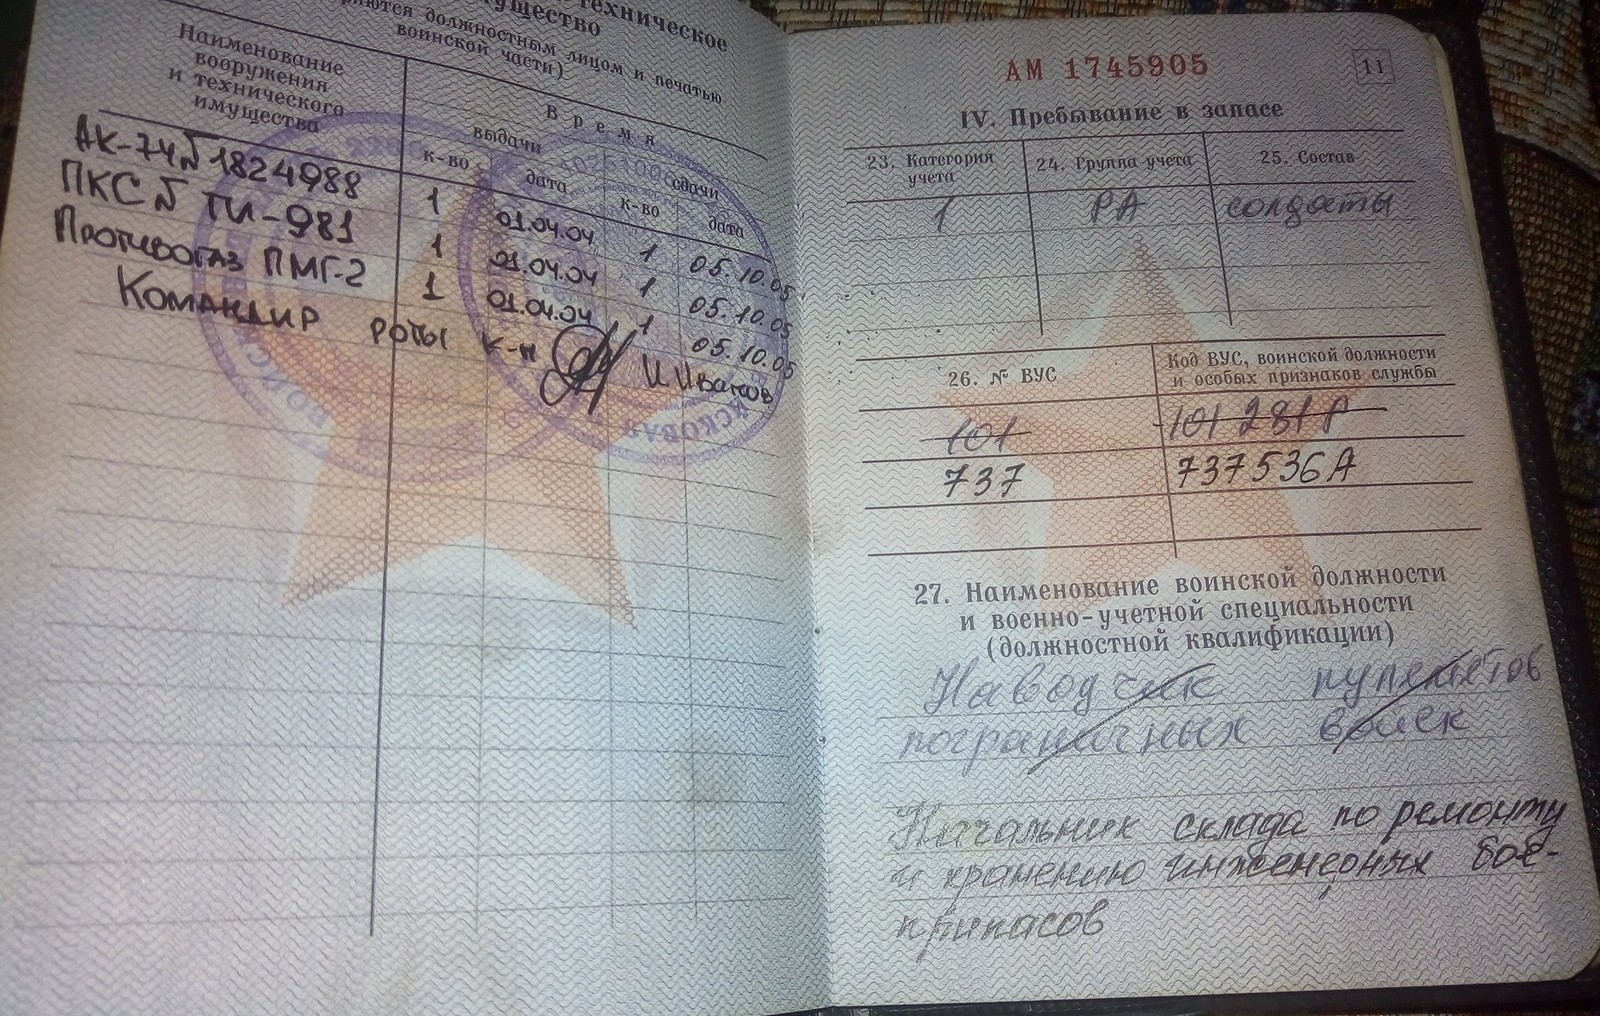 техническое
ущество
должностным лицом и печатью
воинской части)
Наименование
вооружения
и технического
имущества
Время
выдачи
сдачи
к-во
дата
к-во
дата
АК-74 № 1824988 1 01.04.04 1 05.10.05
ПКС № ТИ-981 1 01.04.04 1 05.10.05
Противогаз ПМГ-2 1 01.04.04 1 05.10.05
Командир роты к-н И Иванов
АМ 1745905
11
IV. Пребывание в запасе
23. Категория
учета
24. Группа учета
25. Состав
1 РА солдаты
26. № ВУС
Код ВУС, воинской должности
и особых признаков службы
101
737 737536А
27. Наименование воинской должности
и военно-учетной специальности
(должностной квалификации)
Наводчик пулеметов
пограничных войск
Начальник склада по ремонту
и хранению инженерных бое-
припасов